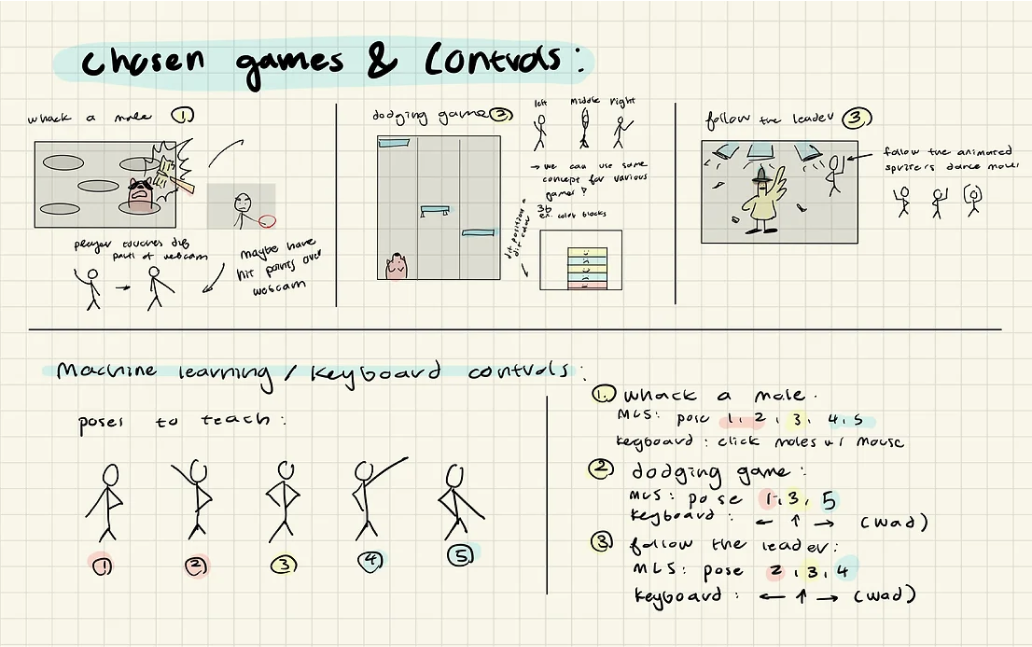 chosen games & Controls:
whack a mole ①
player touches diff
parts of webcam
maybe have
hit points over
webcam
dodging game ②
left middle right
→ we can use same
concept for various
games?
3b
ex. color blocks
dif position =
dif color
follow the leader ③
follow the animated
sprite's dance moves
Machine learning / Keyboard controls:
poses to teach:
① ② ③ ④ ⑤
① whack a mole.
MLS: pose 1, 2, 3, 4, 5
keyboard: click moles w/ mouse
② dodging game:
MLS: pose 1, 3, 5
keyboard: ← ↑ → (wad)
③ follow the leader:
MLS: pose 2, 3, 4
keyboard: ← ↑ → (wad)